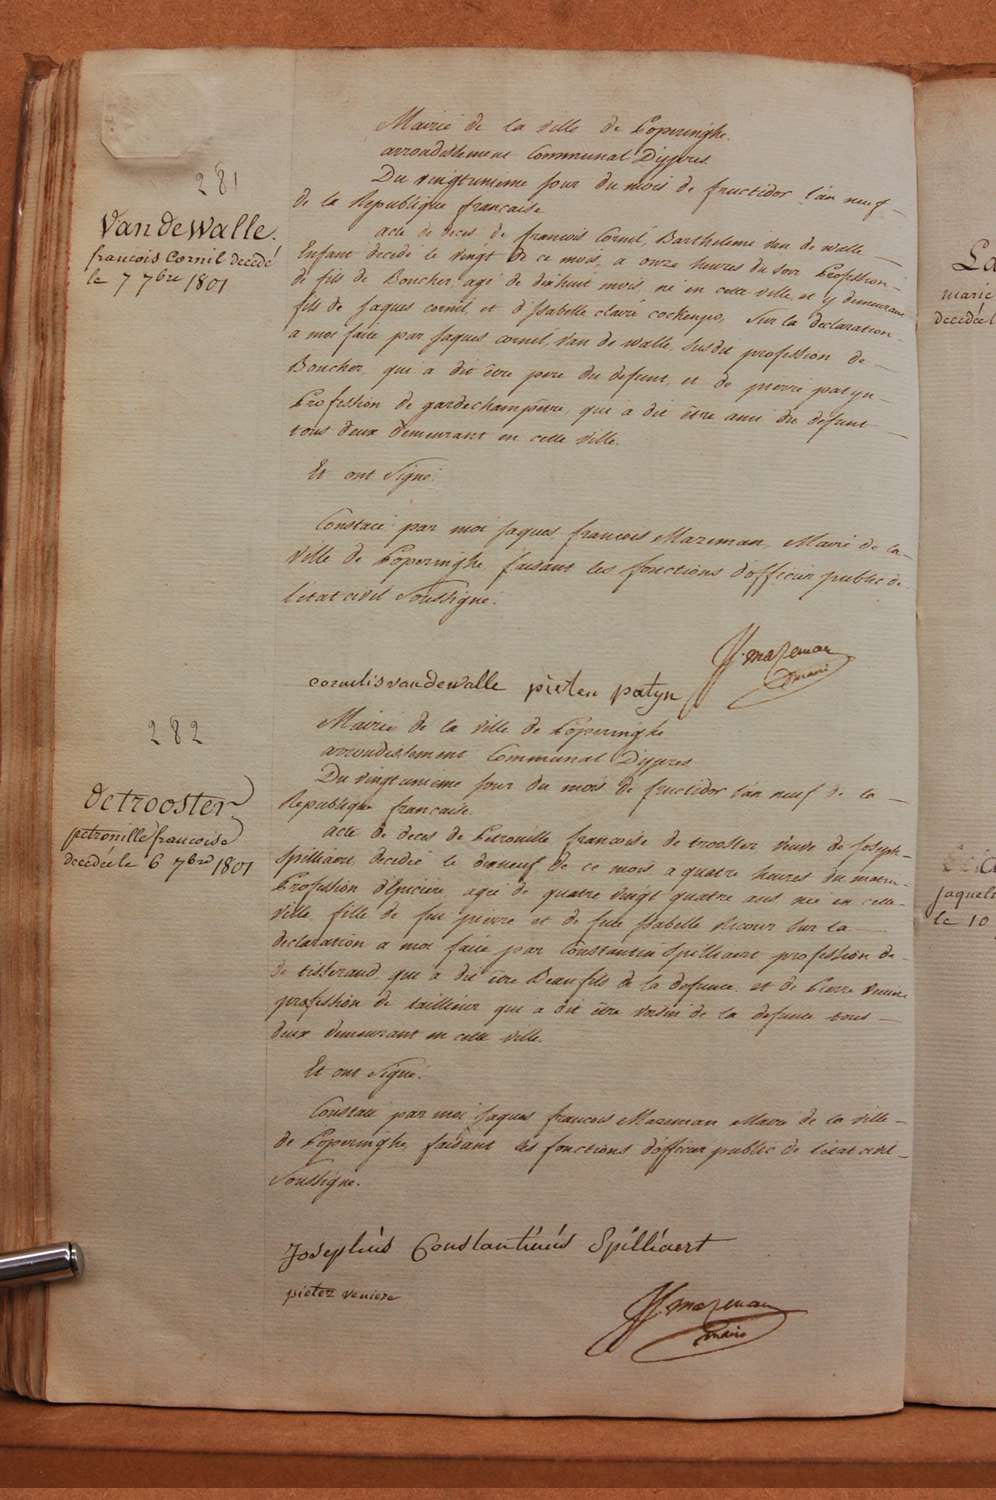 281
Van De Walle.
francois Cornil decedé
le 7 7bre 1801
Mairie de la ville de Poperinghe.
arrondissement Communal D'ypres
Du vingtunieme jour du mois de fructidor l'an neuf
de la Republique francaise
acte de deces de francois Cornil, Bartholemé van de walle
Enfant decedé le vingt de ce mois, a onze heures du soir Profession
de fils de Boucher, agé de dixhuit mois, né en cette ville, et y demeurant
fils de Jaques cornil, et d'Isabelle claire cockenpo, Sur la declaration
a moi faite par Jaques cornil, van de walle, susdit profession de
Boucher, qui a dit être pere du defunt, et de pierre patyn
Profession de gardechampêtre, qui a dit être ami du defunt
tous deux demeurant en cette ville.
Et ont Signé.
Constaté par moi Jaques francois Mazeman, Maire de la
ville de Poperinghe, faisant les fonctions d'officier public de
l'etat civil Soussigné.
JJ. mazeman
maire
cornelis vandewalle pieter patyn
282
Detrooster
petronille francoise
decedée le 6 7bre 1801
Mairie de la ville de Poperinghe
arrondissement Communal D'ypres
Du vingtunieme jour du mois de fructidor l'an neuf de la
Republique francaise.
acte de deces de Petronille francoise de trooster veuve de Joseph
Spilliaert, decedée le dixneuf de ce mois a quatre heures du matin
Profession d'Epiciere agée de quatre vingt quatre ans née en cette
ville, fille de feu pierre et de feue Isabelle Sur la
declaration a moi faite par Constantin Spilliaert profession de
de tisserand qui a dit être Beaufils de la defunte, et de Pierre veniere
profession de tailleur qui a dit être voisin de la defunte tous
deux demeurant en cette ville.
Et ont Signé.
Constaté par moi Jaques francois Mazeman Maire de la ville
de Poperinghe, faisant les fonctions d'officier public de l'etat civil
Soussigné.
Josephus Constantinus Spilliaert
pieter veniere
JJ. mazeman
maire
La
marie
decedé l
jaquel
le 10